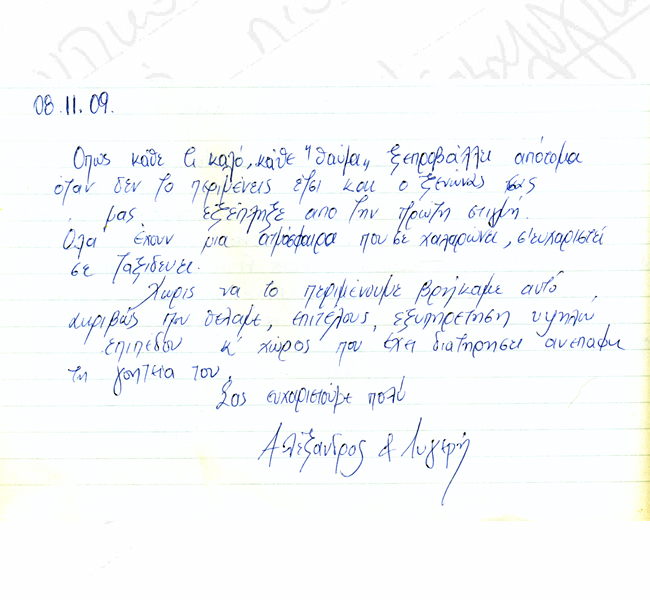 08.11.09.
Όπως κάθε τι καλό, κάθε "θαύμα" ξεπροβάλλει απότομα
όταν δεν το περιμένεις έτσι και ο ξενώνας σας
μας εξέπληξε απο την πρώτη στιγμή.
Όλα έχουν μια ατμόσφαιρα που σε χαλαρώνει, σ'ευχαριστεί
σε ταξιδεύει.
Χωρις να το περιμένουμε βρήκαμε αυτό
ακριβώς που θέλαμε, επιτέλους, εξυπηρέτηση υψηλού
επιπέδου κ' χώρος που έχει διατηρήσει ανέπαφη
τη γοητεία του.
Σας ευχαριστούμε πολύ
Αλέξανδρος & Λυγερή